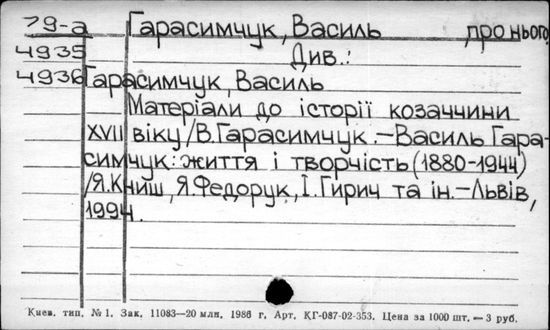 79-а Гарасимчук, Василь про нього
4935 Див.:
4936 Гарасимчук, Василь
Матеріали до історії козаччини
XVII віку/В.Гарасимчук.–Василь Гара-
симчук: життя і творчість (1880-1944)
/Я.Книш, Я.Федорук, І.Гирич та ін.–Львів,
1994.
Киев. тип. № 1. Зак. 11083—20 млн. 1986 г. Арт. КГ-087-02-353. Цена за 1000 шт. — 3 руб.